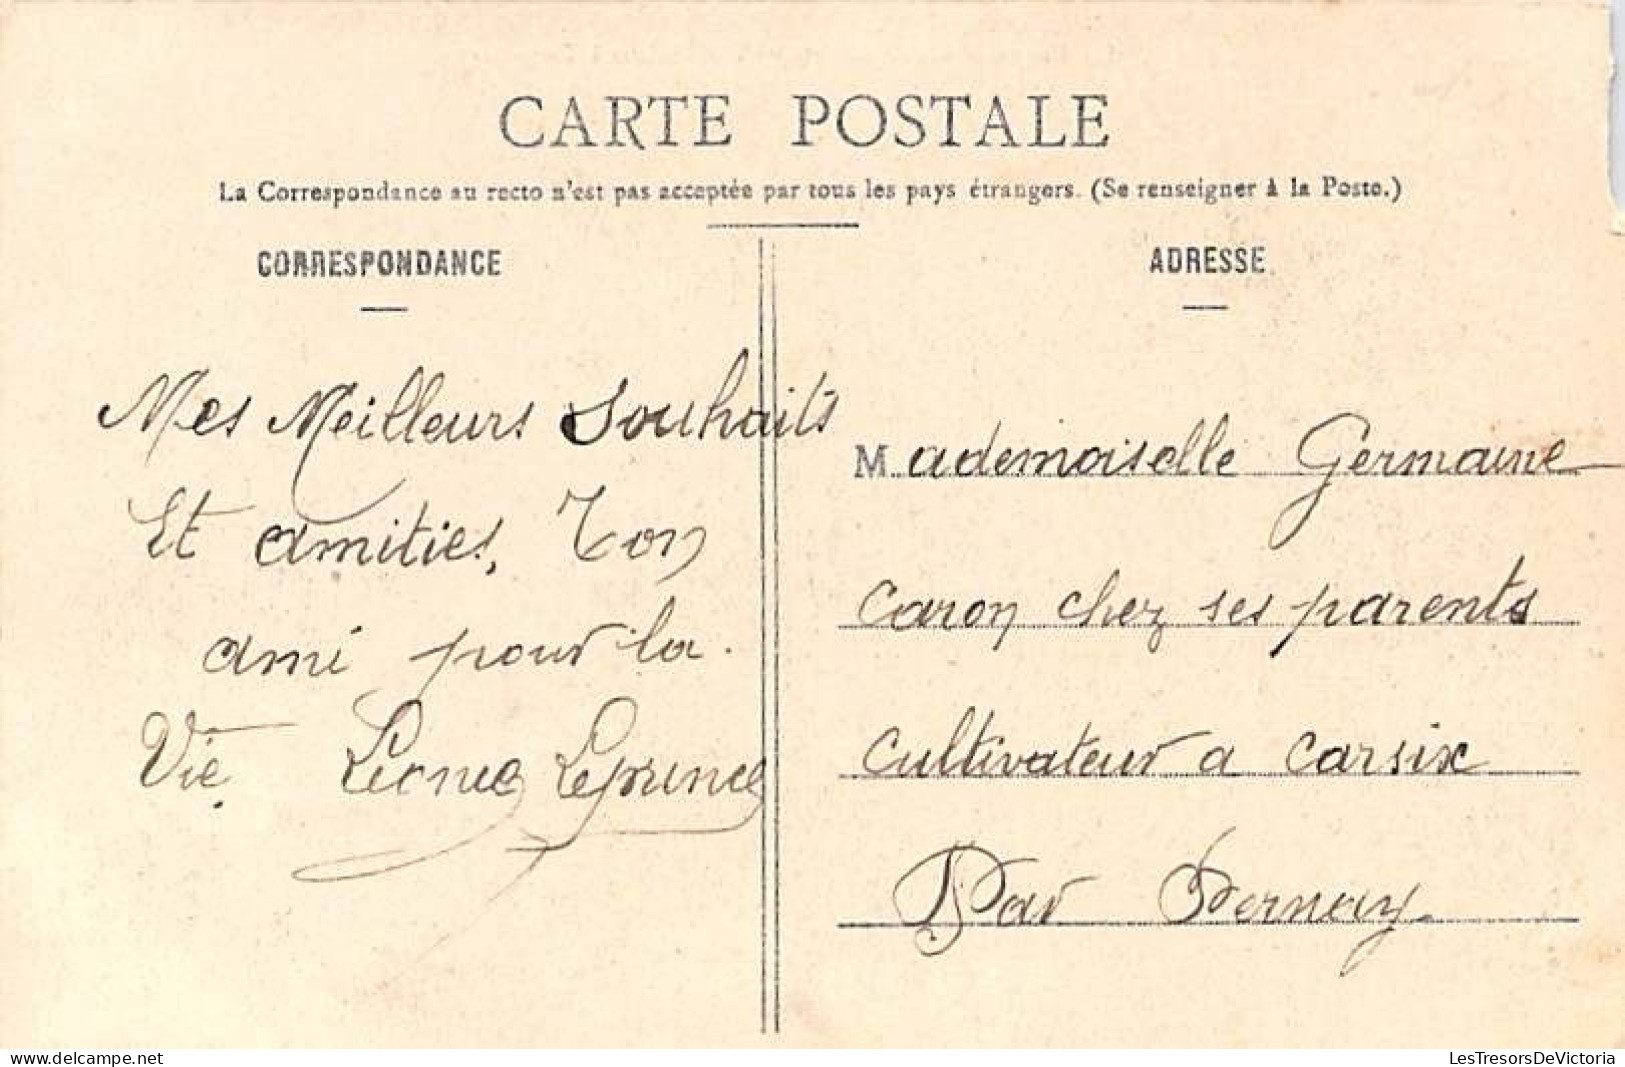 CARTE POSTALE
La Correspondance au recto n'est pas acceptée par tous les pays étrangers. (Se renseigner à la Poste.)
CORRESPONDANCE
Mes Meilleurs Souhaits
Et amitiés, Ton
ami pour la
Vie
ADRESSE
Mademoiselle Germaine
Caron chez ses parents
cultivateur a Carsix
Par
LesTresorsDeVictoria